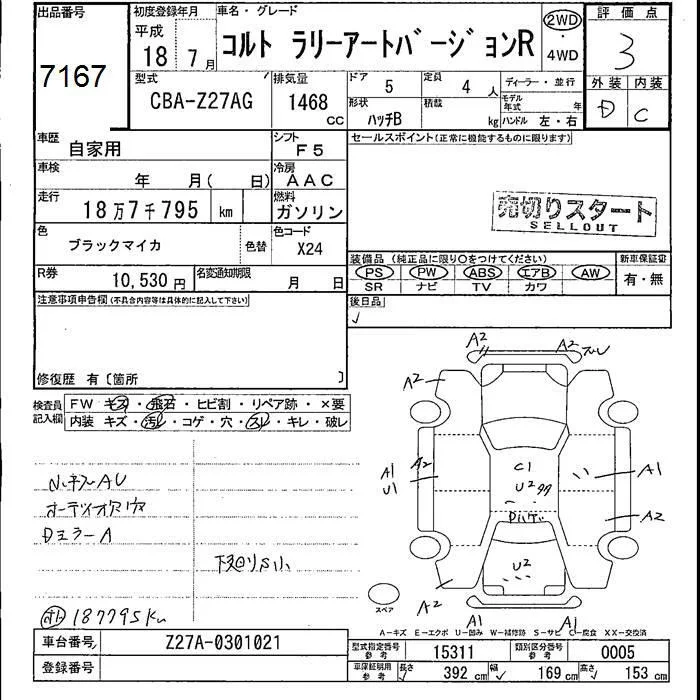 出品番号
7167
初度登録年月
平成
18 7月
車名・グレード
コルト ラリーアートバージョンR
2WD
・
4WD
評価点
3
型式
CBA-Z27AG
排気量
1468
cc
ドア
5
定員
4人
ディーラー・並行
形状
ハッチB
積載
kg
モデル年式
年
ハンドル 左・右
外装 内装
D C
車歴
自家用
シフト
F5
セールスポイント(正常に機能するものに限ります)
車検
年 月( 日)
冷房
AAC
走行
18万7千795 km
燃料
ガソリン
売切りスタート
SELLOUT
色
ブラックマイカ
色替
色コード
X24
装備品(純正品に限り○をつけてください)
新車保証書
PS PW ABS エアB AW
SR ナビ TV カワ
有・無
R券
10,530円
名変通知期限
月 日
後日品
注意事項申告欄(不具合内容等は具体的に記入して下さい)
修復歴 有〔箇所 〕
検査員
記入欄
FW キズ・飛石・ヒビ割・リペア跡・×要
内装 キズ・汚レ・コゲ・穴・スレ・キレ・破レ
A2
A2
A2
A1
U1
C1
U2
A1
A2
U2
A2
A1
A1
オーディオ欠
DミラーA
下廻りS小
187795km
スペア
A-キズ E-エクボ U-凹み W-補修跡 S-サビ C-腐食 XX-交換済
車台番号
Z27A-0301021
登録番号
型式指定番号
参考
15311
類別区分番号
参考
0005
車庫証明用
参考
長さ
392 cm
幅
169 cm
高さ
153 cm